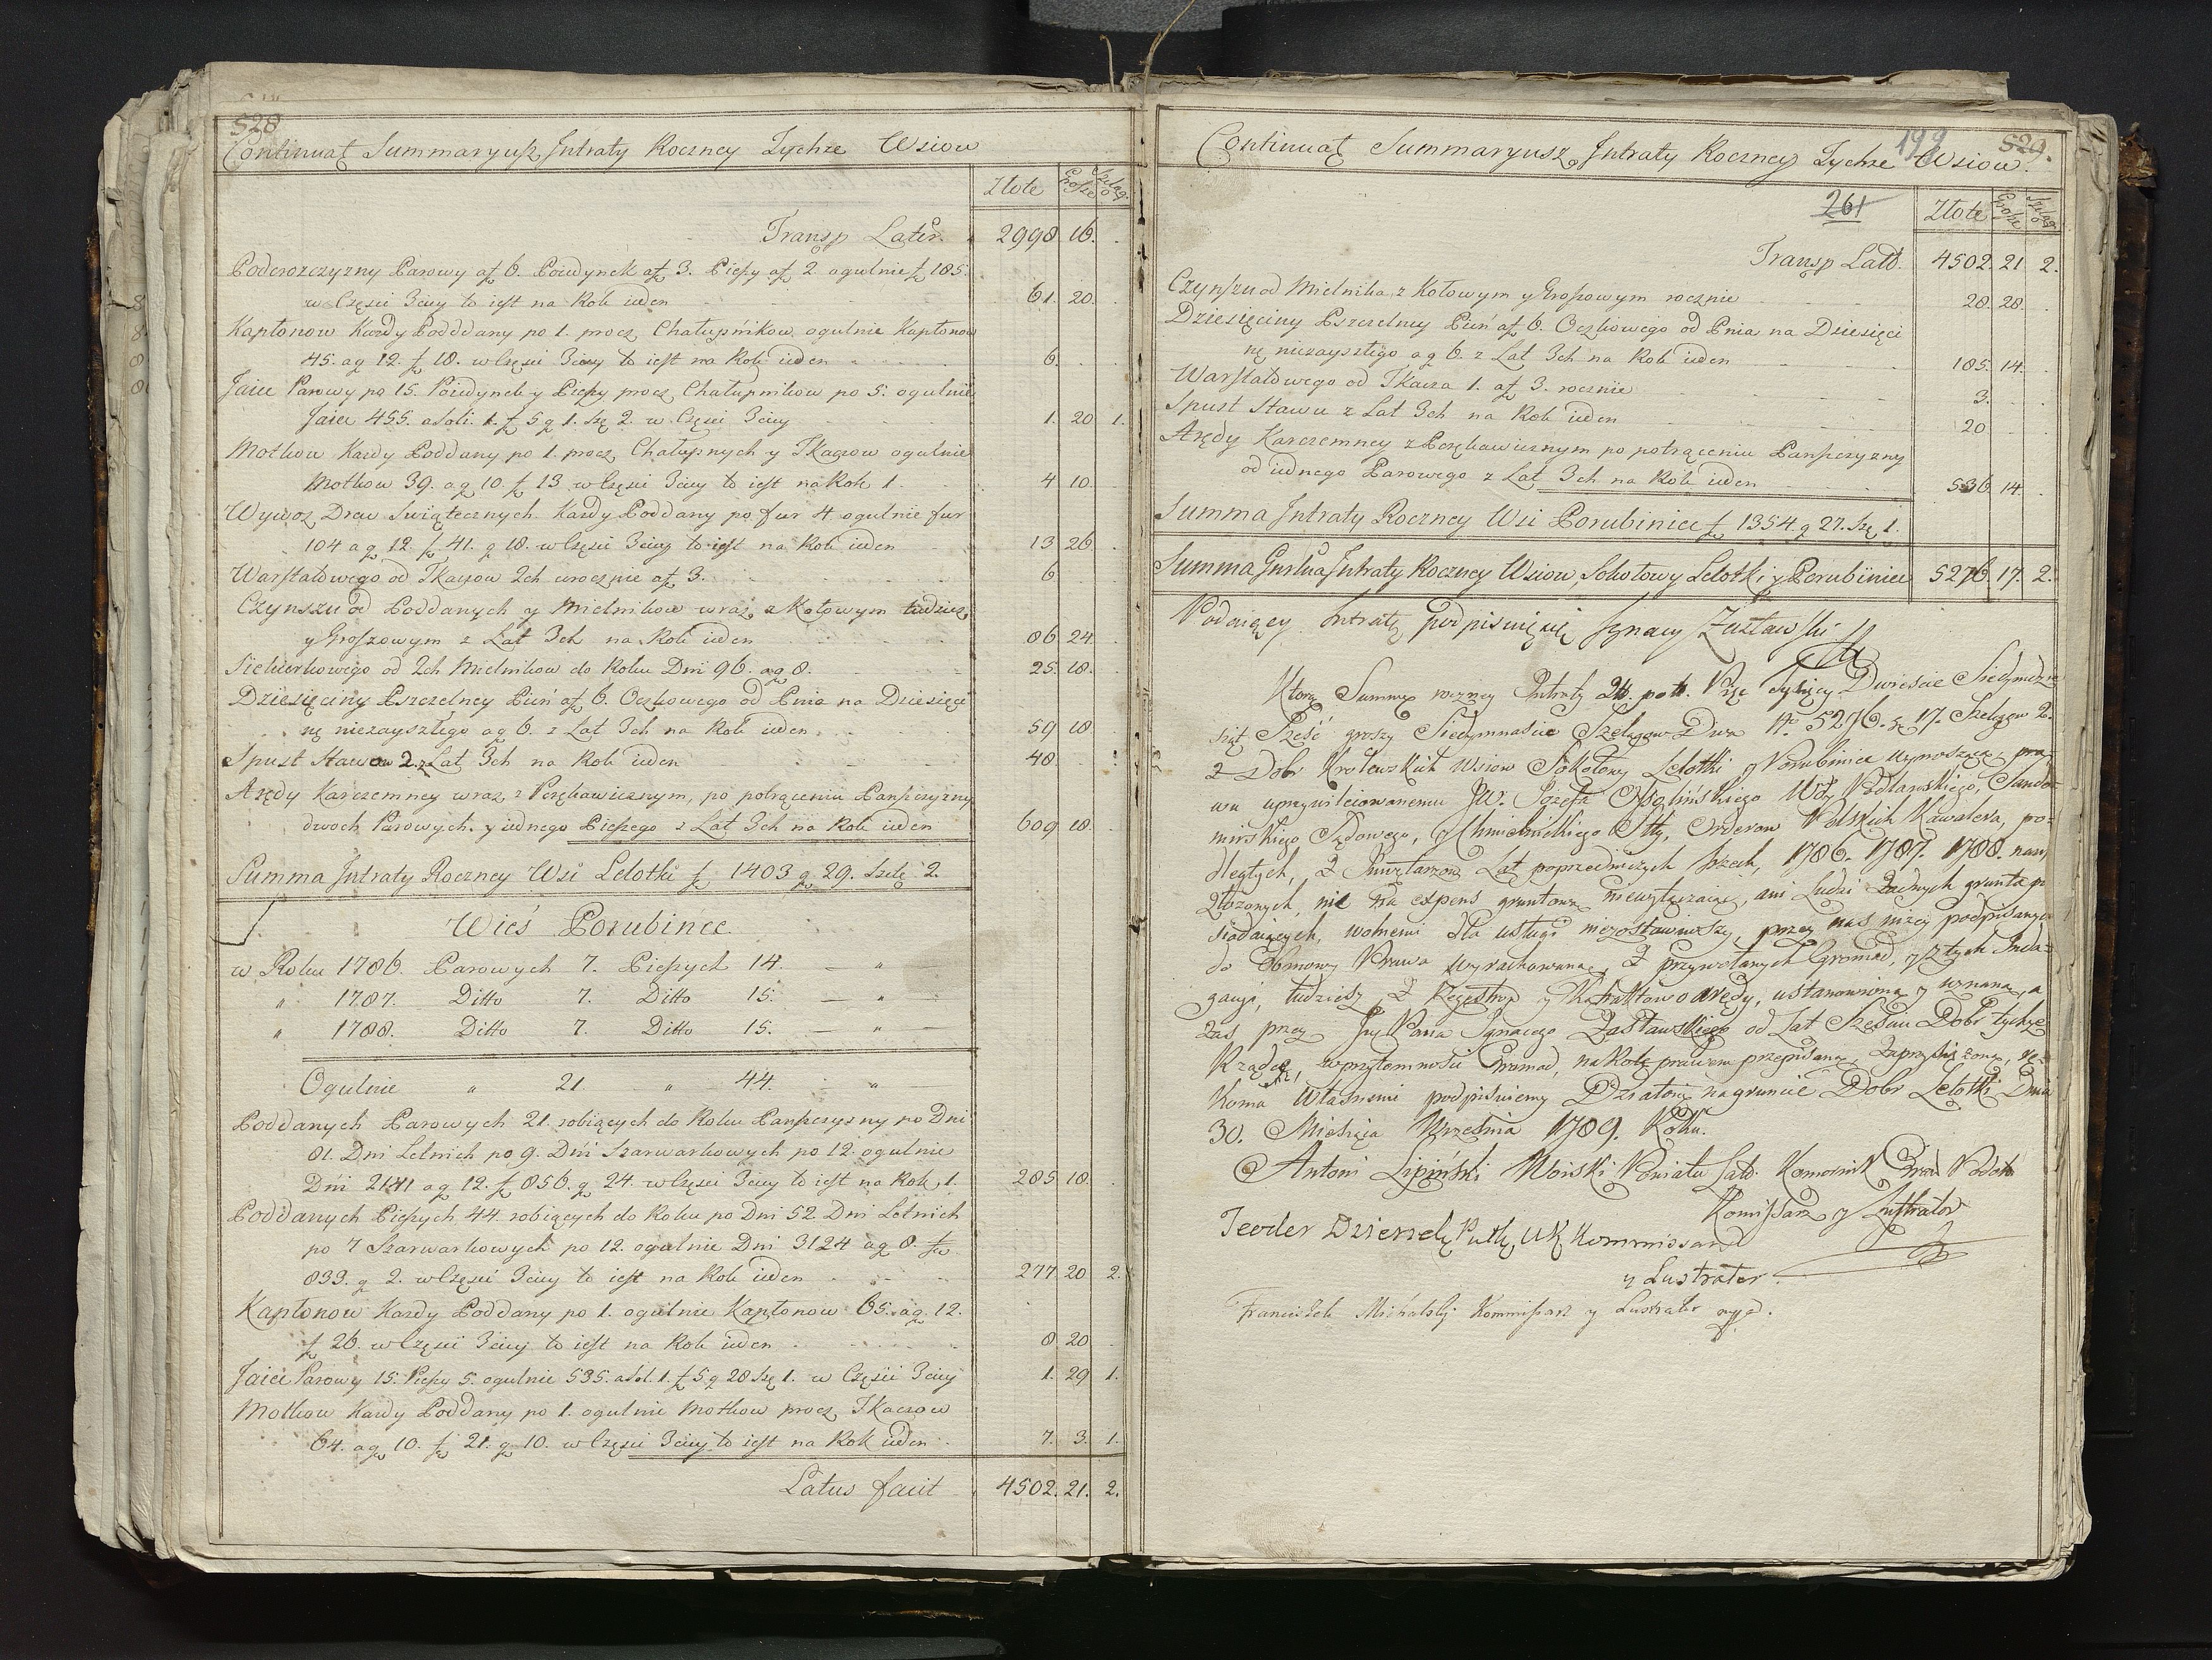 528
Continuat Summaryusz Intraty Roczney Tychże Wsiow
Złote Grosze Szeląg
Transp Later. 2998 16.
Podorozczyzny Parowy af 6. Poiedynek af 3. Pieszy af 2 ogulnie f 185.
w Częsci 3ciey to iest na Rok ieden 61. 20.
Kapłonow Każdy Poddany po 1. procz Chałupnikow ogulnie Kapłonow
45. ag 12. f 18. w Częsci 3ciey to iest na Rok ieden 6.
Jaiec Parowy po 15. Poiedynek y Pieszy procz Chałupnikow po 5. ogulnie
Jaiec 455. a Soli. 1. f 5 g 1. Szę 2. w Częsci 3ciey 1. 20 1.
Motkow Każdy Poddany po 1. procz Chałupnych y Tkaczow ogulnie
Motkow 39. ag 10. f 13 w Częsci 3ciey to iest na Rok 1. 4 10.
Wywoz Drew Swiątecznych Każdy Poddany po fur 4 ogulnie fur
104 ag 12. f 41. g 18. w Częsci 3ciey to iest na Rok ieden 13 26.
Warsztatowego od Tkaczow 2ch corocznie af 3. 6
Czynszu od Poddanych y Mielnikow wraz z Kołowym tudziesz
y Groszowym z Lat 3ch na Rok ieden 86 24.
Siekierkowego od 2ch Mielnikow do Roku Dni 96. ag 8. 25. 18.
Dziesięciny Pszczelney Pień af 6. Oczkowego od Pnia na Dziesięci
nę niezayszłego ag 6. z Lat 3ch na Rok ieden 59 18
Spust Stawow 2. z Lat 3ch na Rok ieden 48.
Arędy Karczemney wraz z Perękawicznym, po potrąceniu Panszczyzny
dwoch Parowych y iednego Pieszego z Lat 3ch na Rok ieden 609 18.
Summa Intraty Roczney Wsi Lelotki f 1403 g 29. Szelę 2.
Wieś Porubince.
w Roku 1786. Parowych 7. Pieszych 14. — " —
" 1787. Ditto 7. Ditto 15. — " —
" 1788. Ditto 7. Ditto 15. — " —
Ogulnie " 21 " 44. "
Poddanych Parowych 21. robiących do Roku Panszczyzny po Dni
81. Dni Letnich po 9. Dni Szarwarkowych po 12. ogulnie
Dni 2141 ag 12. f 856. g 24. w Częsci 3ciey to iest na Rok 1. 285 18.
Poddanych Pieszych 44. robiących do Roku po Dni 52 Dni Letnich
po 7 Szarwarkowych po 12. ogulnie Dni 3124 ag 8. f
833. g 2. w Częsci 3ciey to iest na Rok ieden 277 20 2.
Kapłonow Każdy Poddany po 1. ogulnie Kapłonow 65. ag 12.
f 26. w Częsci 3ciey to iest na Rok ieden 8 20
Jaiec Parowy 15. Pieszy 5. ogulnie 535. a Sol. 1. f 5 g 28 Szę 1. w Częsci 3ciey 1. 29 1.
Motkow Każdy Poddany po 1. ogulnie Motkow procz Tkaczow
64. ag 10. f 21. g 10. w Częsci 3ciey to iest na Rok ieden 7. 3. 1.
Latus facit 4502. 21. 2.
199 529.
Continuat Summaryusz Intraty Roczney Tychże Wsiow.
261
Złote Grosze Szeląg
Transp Latt. 4502. 21 2.
Czynszu od Mielnika z Kołowym y Groszowym rocznie 28 28.
Dziesięciny Pszczelney Pień af 6. Oczkowego od Pnia na Dziesięci
nę niezayszłego ag 6. z Lat 3ch na Rok ieden 185. 14.
Warsztatowego od Tkacza 1. af 3. rocznie 3.
Spust Stawu z Lat 3ch na Rok ieden 20
Arędy Karczemney z Perękawicznym po potrąceniu Panszczyzny
od iednego Parowego z Lat 3ch na Rok ieden 536. 14.
Summa Intraty Roczney Wsi Porubince f 1354. g 27. Szę 1.
Summa Gnrlna Intraty Roczney Wsiow, Sokołowy Lelotki y Porubince 5276 17. 2.
Podaiący Intratę podpisuię się Ignacy Zasławski
Ktorą Summę roczney Intraty Zł. pol. Pięć Tysięcy Dwiescie Siedymdzie
siąt Sześć groszy Siedymnaście Szelągow Dwa No 5276. g 17. Szelągow 2.
z Dobr Krolewskich Wsiow Sokołowy Lelotki y Porubince wynoszącą, pra=
wu uprzywileiowanemu JW. Jozefa Ossolińskiego Wdy Podlaskiego, Sando=
mirskiego Sądowego, y Chmielnickiego Stty, Orderow Polskich Kawalera, po=
dległych, z Inwętarzow Lat poprzedniczych trzech, 1786. 1787. 1788. nam
złożonych, nic na expens gruntową niewytrącaiąc, ani ludzi żadnych grunta po
siadaiących, wolnemi dla usługi niezostawiwszy, przez nas niżey podpisanych
do Osnowy Prawa wyrachowaną, z przywołanych Gromad, y z tych Inda=
gacyi, tudziesz z Regestrow y Kontraktow o arędy, ustanowioną y uznaną, a
zas przez Jmc Pana Ignacego Zasławskiego od Lat Szesciu Dobr tychże
Rządcę, w przytomności Gromad, na Rotę prawem przepisaną, zaprzysiężoną, rę=
koma własnemi podpisuiemy Działo się na gruncie Dobr Lelotki Dnia
30. Miesiąca Września 1789. Roku.
Antoni Lipiński Woiski Powiatu Komornik
Kommissarz y Lustrator
Teodor Dzierzek Kommissarz
y Lustrator.
Franciszek Michalski Kommissarz y Lustrator